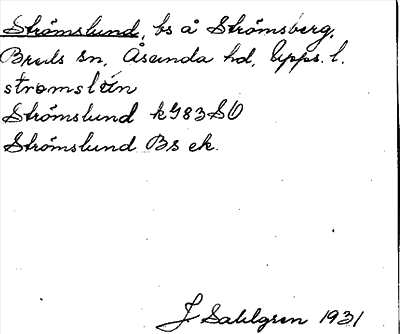 Strömslund, bs å Strömsberg,
Breds sn, Åsunda hd, Upps. l.
strömslún
Strömslund k 983 SO
Strömslund Bs ek.
J Sahlgren 1931